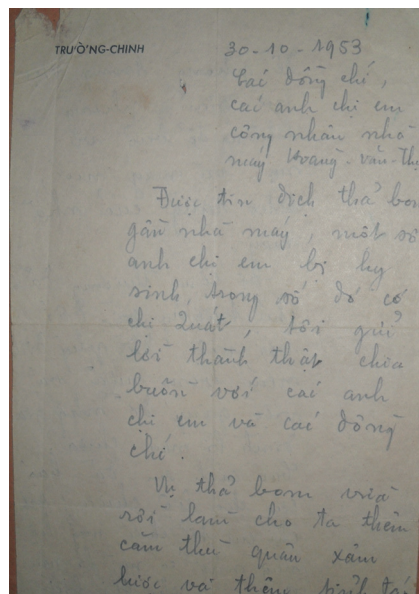 TRƯỜNG-CHINH
30-10-1953
Các đồng chí,
các anh chị em
công nhân nhà
máy Hoàng-văn-Thụ
Được tin địch thả bom
gần nhà máy, một số
anh chị em bị hy
sinh, trong số đó có
chị Quát, tôi gửi
lời thành thật chia
buồn với các anh
chị em và các đồng
chí.
Vụ thả bom vừa
rồi làm cho ta thêm
căm thù quân xâm
lược và thêm tỉnh táo